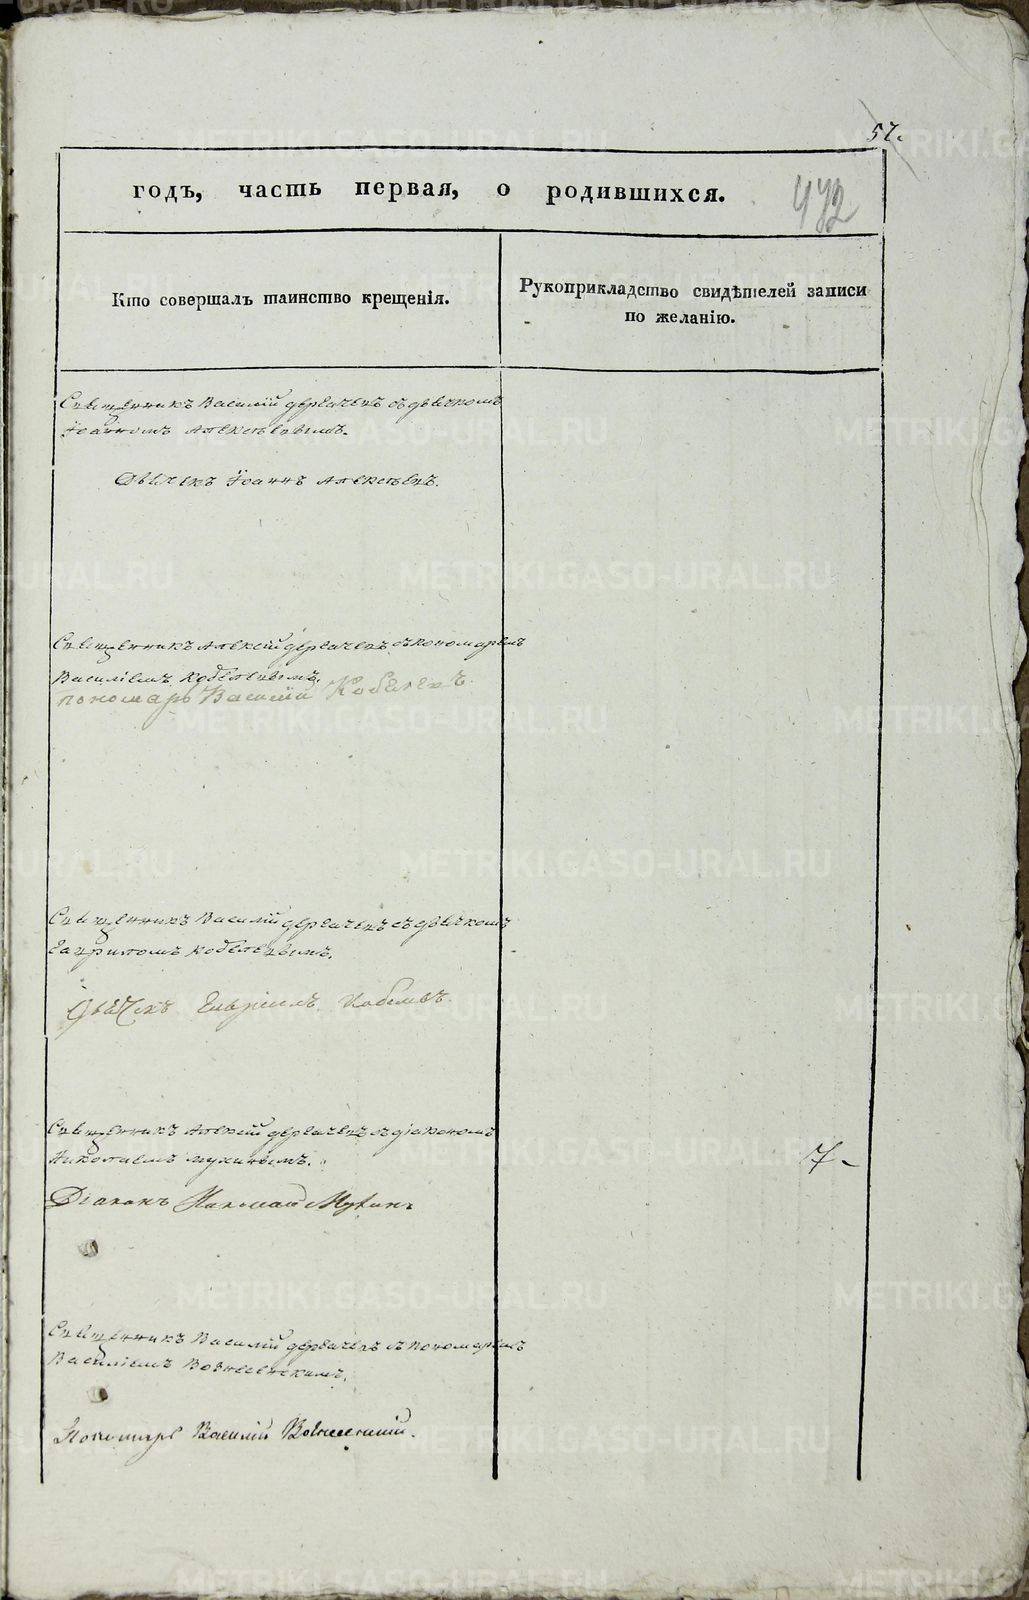 57.
годъ, часть первая, о родившихся.
472
Кто совершалъ таинство крещенія.
Рукоприкладство свидѣтелей записи
по желанію.
Священникъ Василій Дерябинъ съ дьячкомъ
Іоанномъ Алексѣевымъ.
Дьячекъ Іоаннъ Алексѣевъ.
Священникъ Алексій съ пономаремъ
Василіемъ Кобелевымъ.
пономарь Василій Кобелевъ.
Священникъ Василій съ дьячкомъ
Гавриломъ Кобелевымъ.
Дьячекъ Гавріилъ Кобелевъ.
Священникъ Алексій съ діакономъ
Николаемъ Мухинымъ.
7-
Діаконъ Николай Мухинъ
Священникъ Василій съ пономаремъ
Василіемъ Вознесенскимъ.
Пономарь Василій Вознесенскій.
METRIKI.GASO-URAL.RU